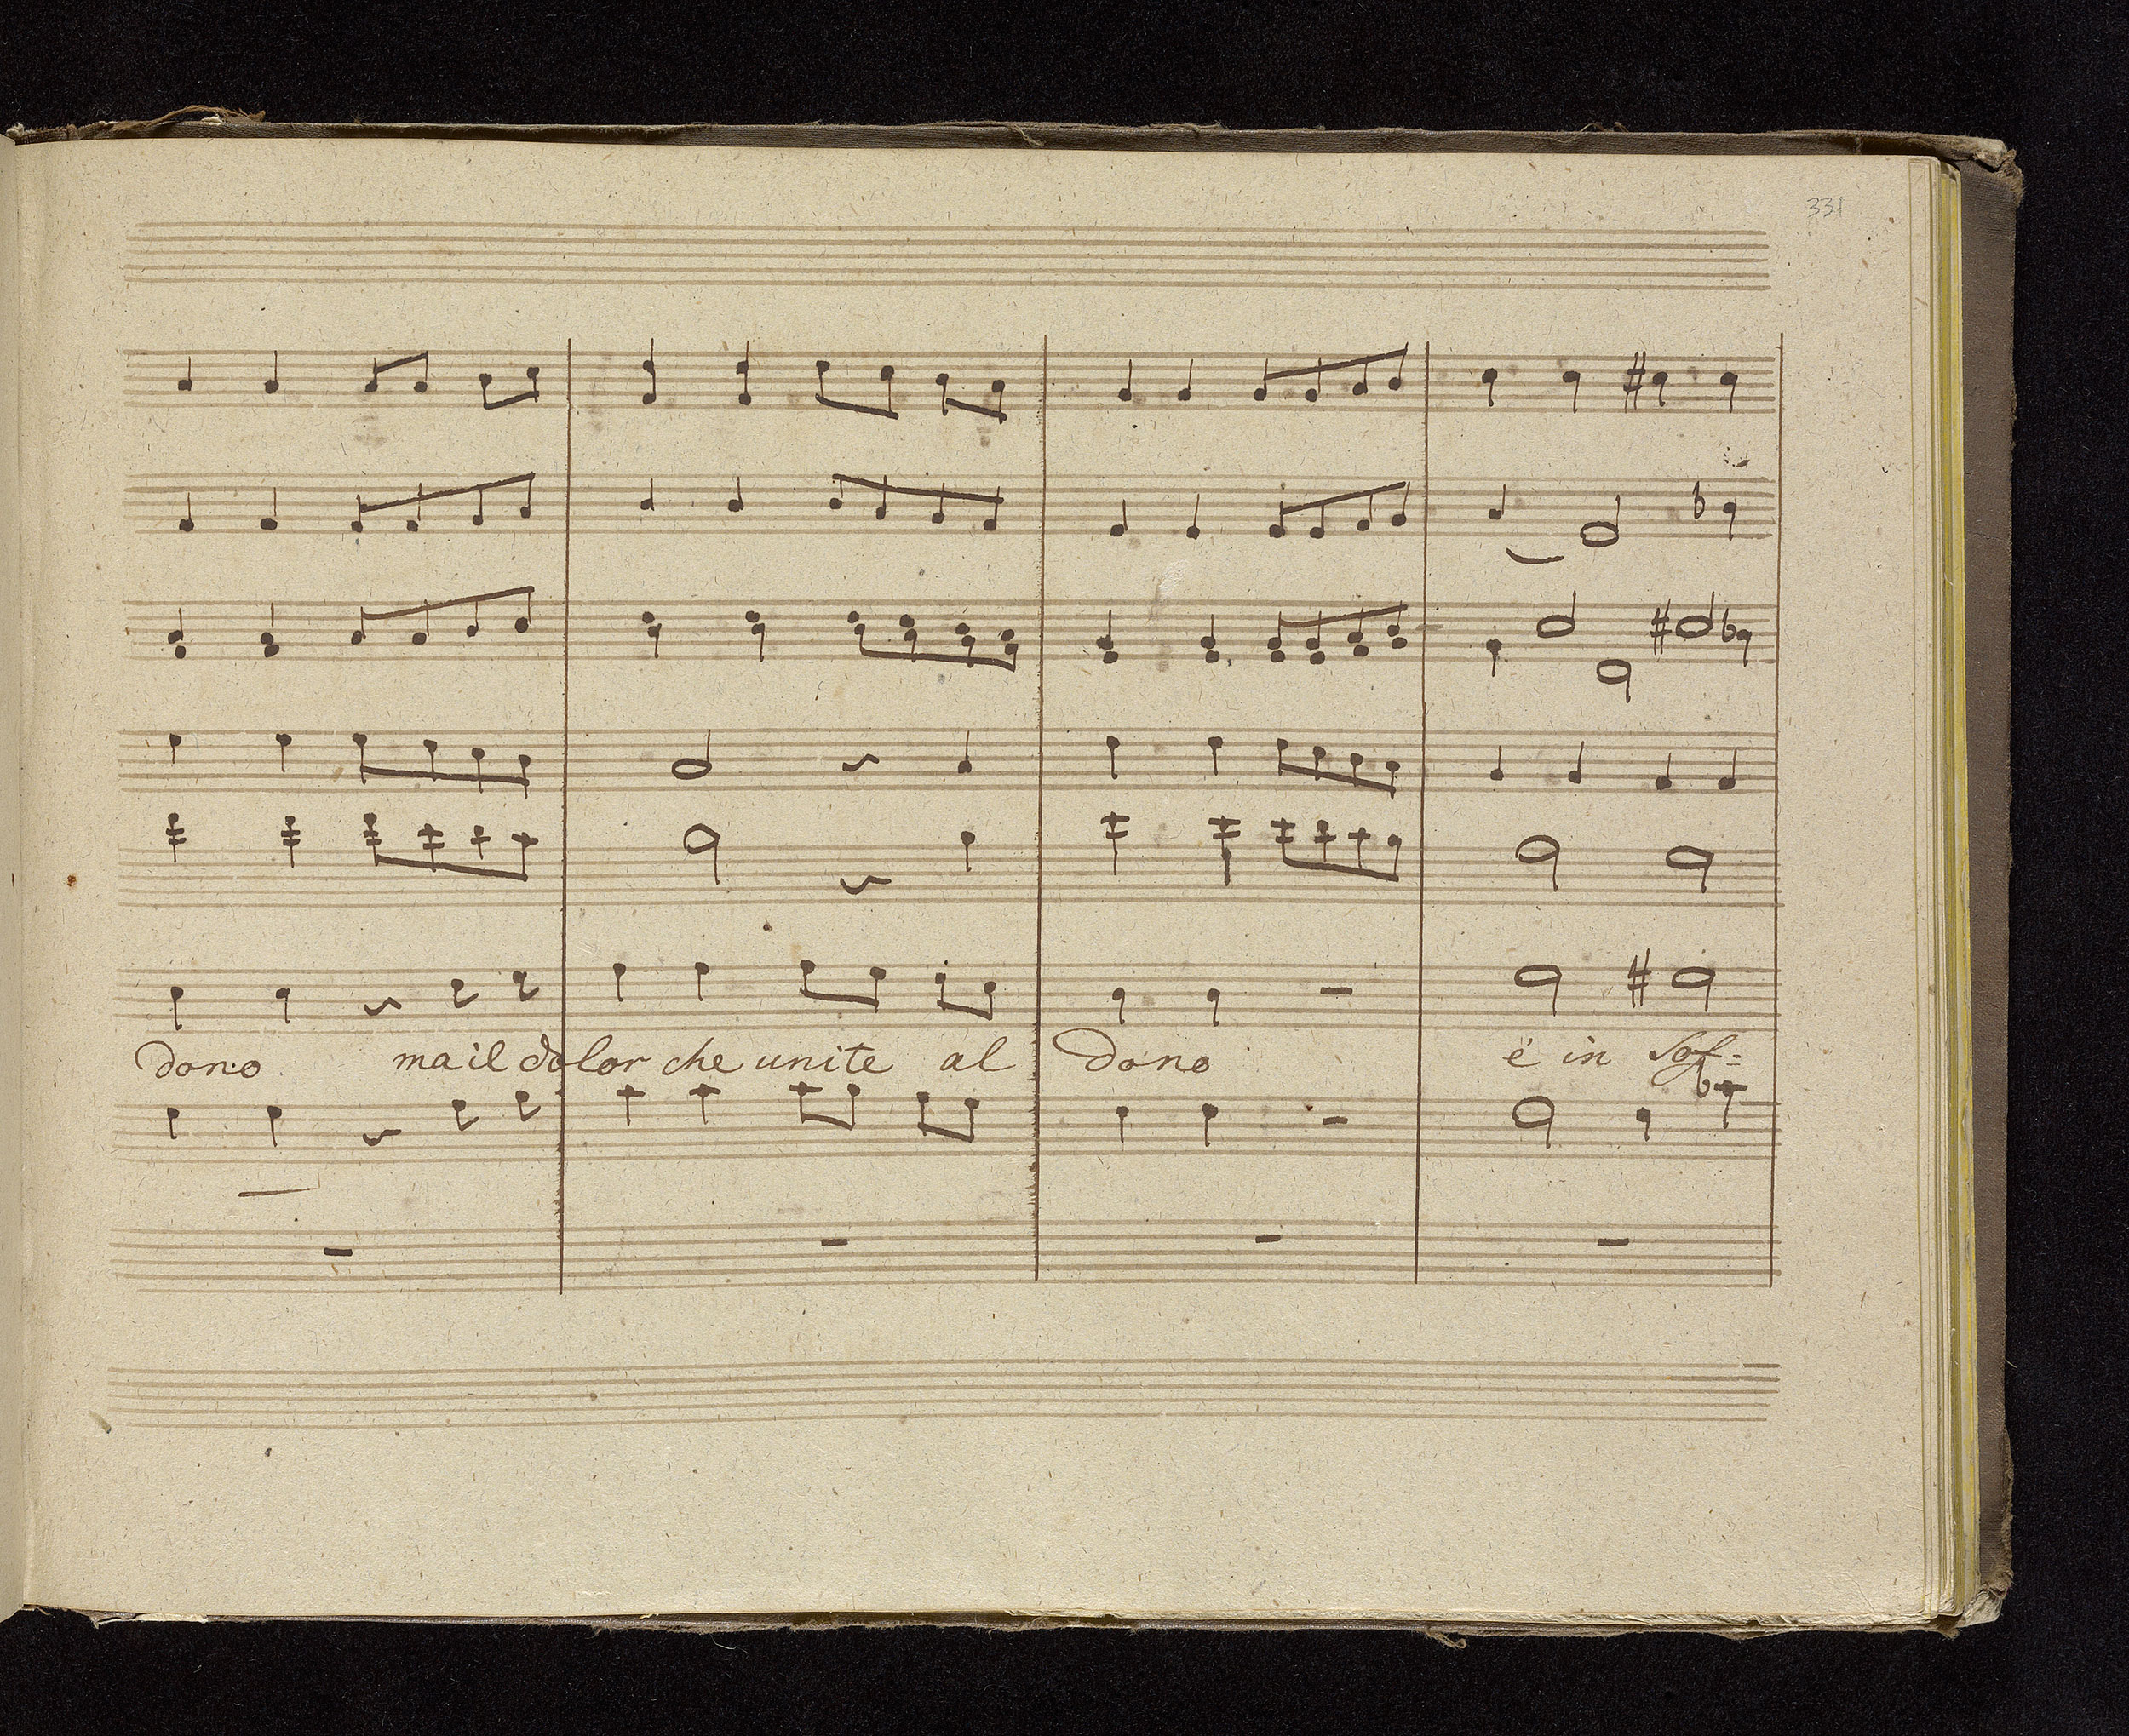 331
dono ma il dolor che unite al dono é in sof=